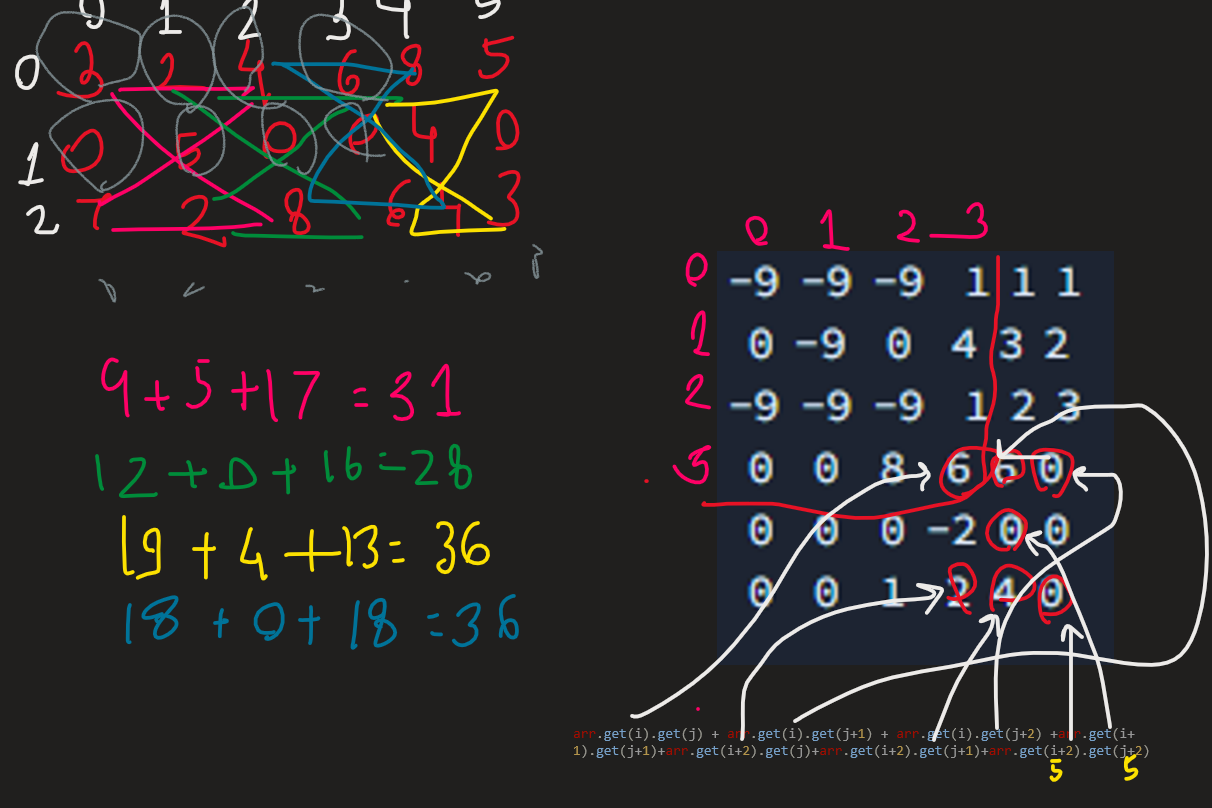 0 1 2 3 4 5
0 3 2 4 6 8 5
1 0 5 0 0 4 0
2 7 2 8 6 7 3
9+5+17=31
12+0+16=28
19+4+13=36
18+0+18=36
0 1 2 3
0 -9 -9 -9 1 1 1
1 0 -9 0 4 3 2
2 -9 -9 -9 1 2 3
3 0 0 8 6 6 0
0 0 0 -2 0 0
0 0 1 2 4 0
arr.get(i).get(j) + arr.get(i).get(j+1) + arr.get(i).get(j+2) +arr.get(i+
1).get(j+1)+arr.get(i+2).get(j)+arr.get(i+2).get(j+1)+arr.get(i+2).get(j+2)
5 5